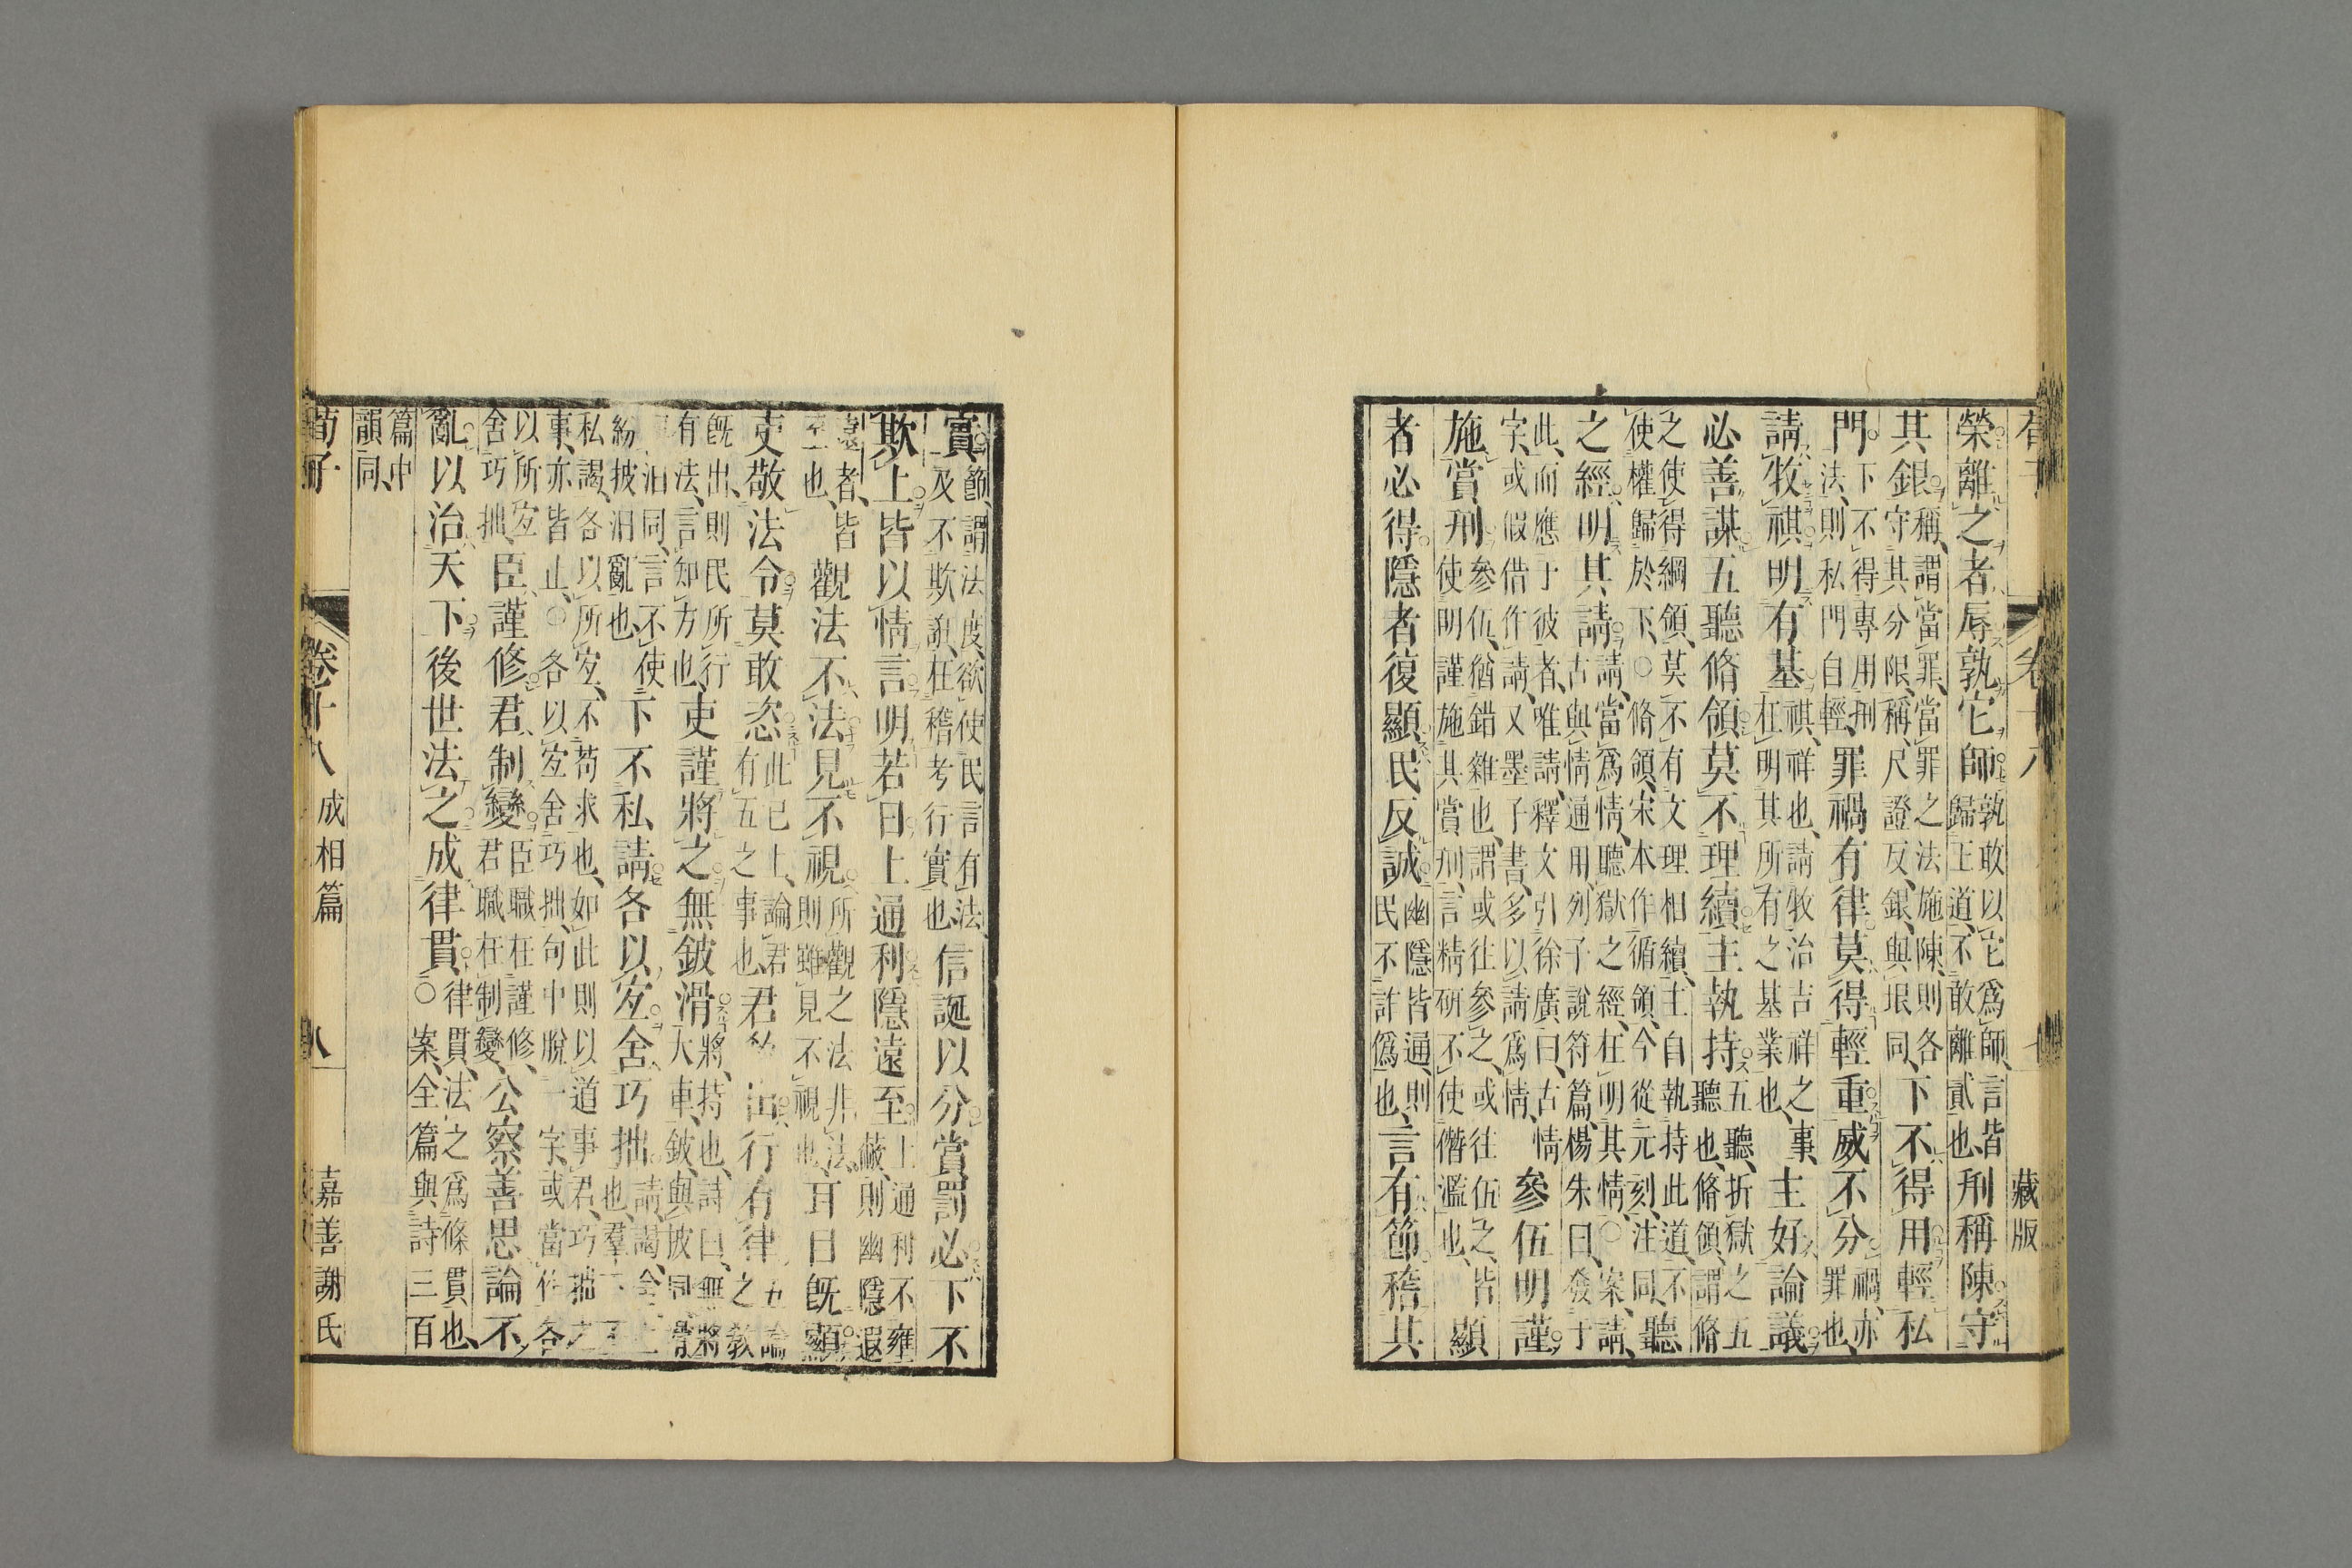 荀子 卷十八 藏版
榮離之者辱孰它師孰敢以它爲師言皆歸王道不敢離貳也刑稱陳守
其銀稱謂當罪當罪之法施陳則各守其分限稱尺證反銀與垠同下不得用輕私
門下不得專用刑法則私門自輕罪禍有律莫得輕重威不分禍亦罪也
請牧祺明有基祺祥也請牧治吉祥之事在明其所有之基業也主好論議
必善謀五聽脩領莫不理續主執持五聽折獄之五聽也脩領謂脩
之使得綱領莫不有文理相續主自執持此道不使權歸於下○脩領宋本作循領今從元刻注同聽
之經明其請請當爲情聽獄之經在明其情○案請古與情通用列子說符篇楊朱曰發于
此而應于彼者唯請釋文引徐廣曰古情字或假借作請又墨子書多以請爲情參伍明謹
施賞刑參伍猶錯雜也謂或往參之或往伍之皆使明謹施其賞刑言精研不使僭濫也顯
者必得隱者復顯民反誠幽隱皆通則民不詐僞也言有節稽其
實節謂法度欲使民言有法及不欺誑在稽考行實也信誕以分賞罰必下不
欺上皆以情言明若日上通利隱遠至上通利不雍蔽則幽隱遐
遠者皆至也觀法不法見不視所觀之法非法則雖見不視也耳目既顯
吏敬法令莫敢恣此已上論君有五之事也君教出行有律五論之教
既出則民所行有法言知方也吏謹將之無鈹滑將持也詩曰無將大車鈹與披同滑
汨同言不使紛披汨亂也下不私請各以宐舍巧拙請謁舍止也羣下
私謁各以所宐不苟求也如此則以道事君巧拙之事亦皆止○各以宐舍巧拙句中脫一字或當作各
以所宐舍巧拙臣謹修君制變臣職在謹修君職在制變公察善思論不
亂以治天下後世法之成律貫律貫法之爲條貫也○案全篇與詩三百
篇中韻同
荀子 卷十八 成相篇 八 嘉善謝氏